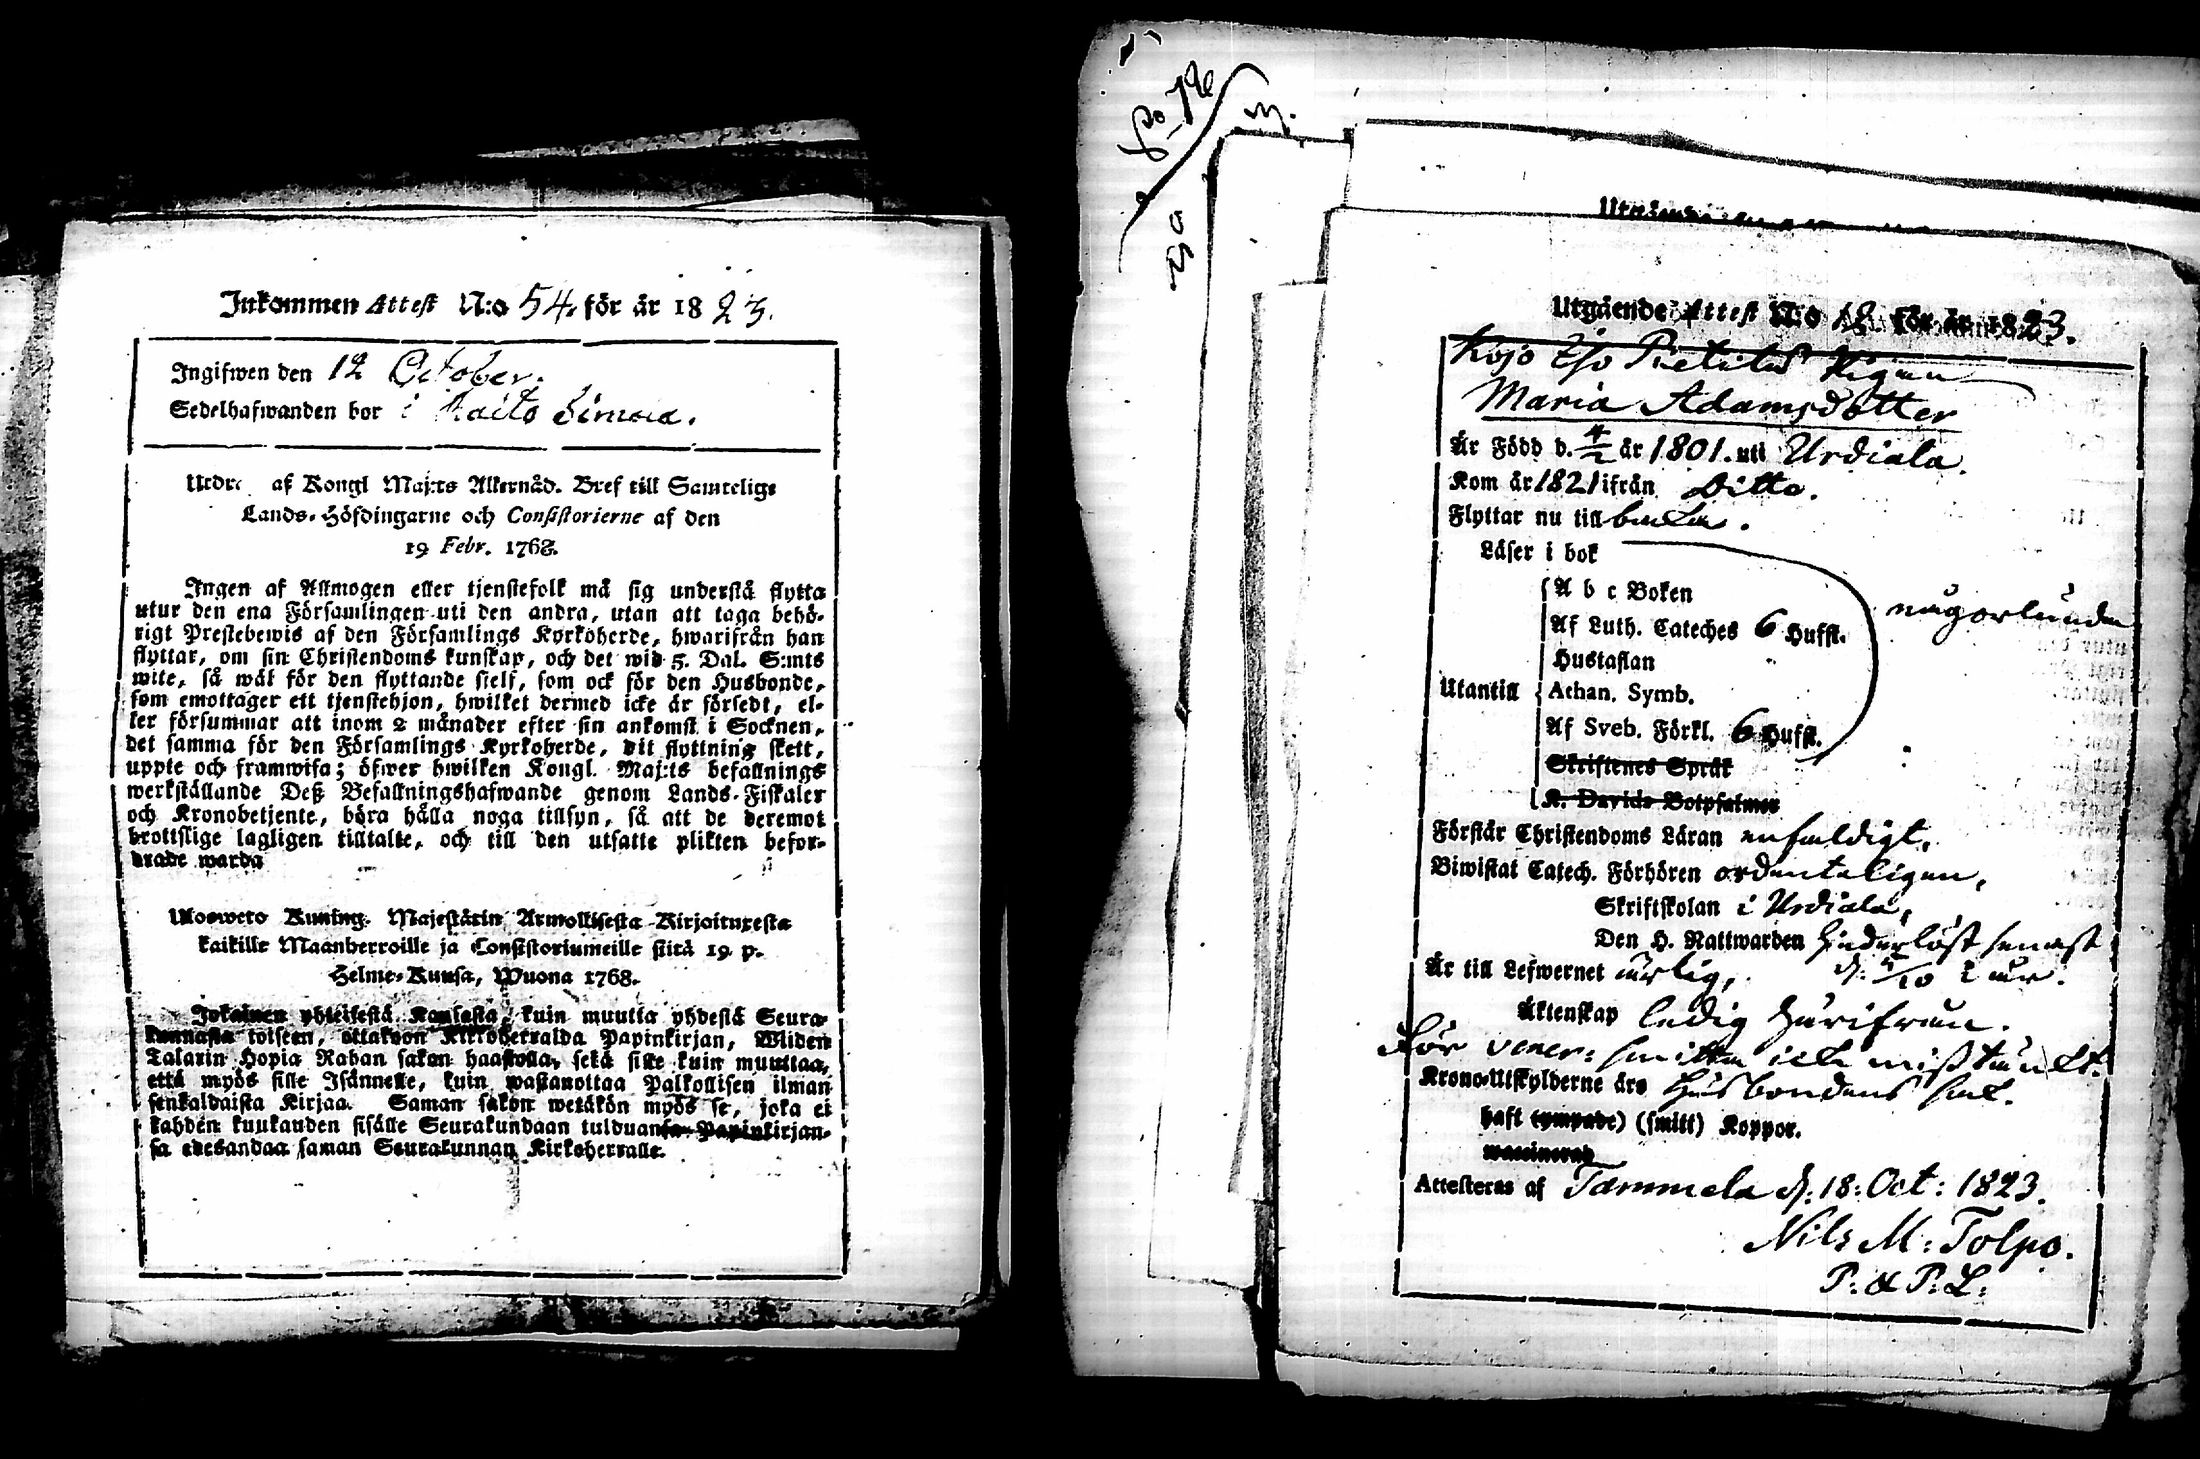 Inkommen Attest N:o 54. för år 1823.
Ingifwen den 12 October.
Sedelhafwanden bor i
Utdr. af Kongl Maj:ts Allernåd. Bref till Samtelige
Lands-Höfdingarne och Consistorierne af den
19 Febr. 1768.
Ingen af Allmogen eller tjenstefolk må sig understå flytta
utur den ena Församlingen uti den andra, utan att taga behö-
rigt Prestebewis af den Församlings Kyrkoherde, hwarifrån han
flyttar, om sin Christendoms kunskap, och det wid 5. Dal. S:mts
wite, så wäl för den flyttande sjelf, som ock för den Husbonde,
som emottager ett tjenstehjon, hwilket dermed icke är försedt, el-
ler försummar att inom 2 månader efter sin ankomst i Socknen,
det samma för den Församlings Kyrkoherde, dit flyttning skett,
uppte och framwisa; öfwer hwilken Kongl. Maj:ts befallnings
werkställande Deß Befallningshafwande genom Lands-Fiskaler
och Kronobetjente, böra hålla noga tillsyn, så att de deremot
brottslige lagligen tilltalte, och till den utsatte plikten befor-
drade warda
Ulosweto Kuning. Majestätin Armollisesta Kirjoituxesta
kaikille Maanherroille ja Consistoriumeille siitä 19. p.
Helme-Kuusa, Wuona 1768.
Jokainen yhteisestä Kansasta, kuin muutta yhdestä Seura-
kunnasta toiseen, ottakoon Kirkoherralda Papinkirjan, Wiiden
Talarin Hopia Rahan sakon haastolla, sekä sille kuin muuttaa,
että myös sille Isännelle, kuin wastanottaa Palkollisen ilman
senkaldaista Kirjaa. Saman sakon wetäkön myös se, joka ei
kahden kuukauden sisälle Seurakundaan tulduansa Papinkirjan-
sa edesandaa saman Seurakunnan Kirkoherralle.
Utgående Attest N:o 18 för år 1823.
Maria Adamsdotter
Är Född d. 4/2 år 1801. uti Urdiala.
Kom år 1821 ifrån Ditto.
Flyttar nu till
Läser i bok
A b c Boken
någorlunda
Af Luth. Cateches 6 Hufst.
Hustaflan
Utantill Athan. Symb.
Af Sveb. Förkl. 6 Hufst.
Skriftenes Språk
K. Davids Botpsalmer
Förstår Christendoms Läran enfaldigt,
Biwistat Catech. Förhören ordenteligen,
Skriftskolan i Urdiala,
Den H. Nattwarden senast
Är till Lefwernet ärlig, d: 5/10 i år.
Äktenskap ledig härifrån.
För vener: smitta icke mißtänkt.
Krono-Utskylderne äro Husbondens sak.
haft (ympade) (smitt) Koppor.
waccinerad
Attesteras af Tammela d: 18: Oct: 1823.
Nils M: Tolpo.
P: & P: L: